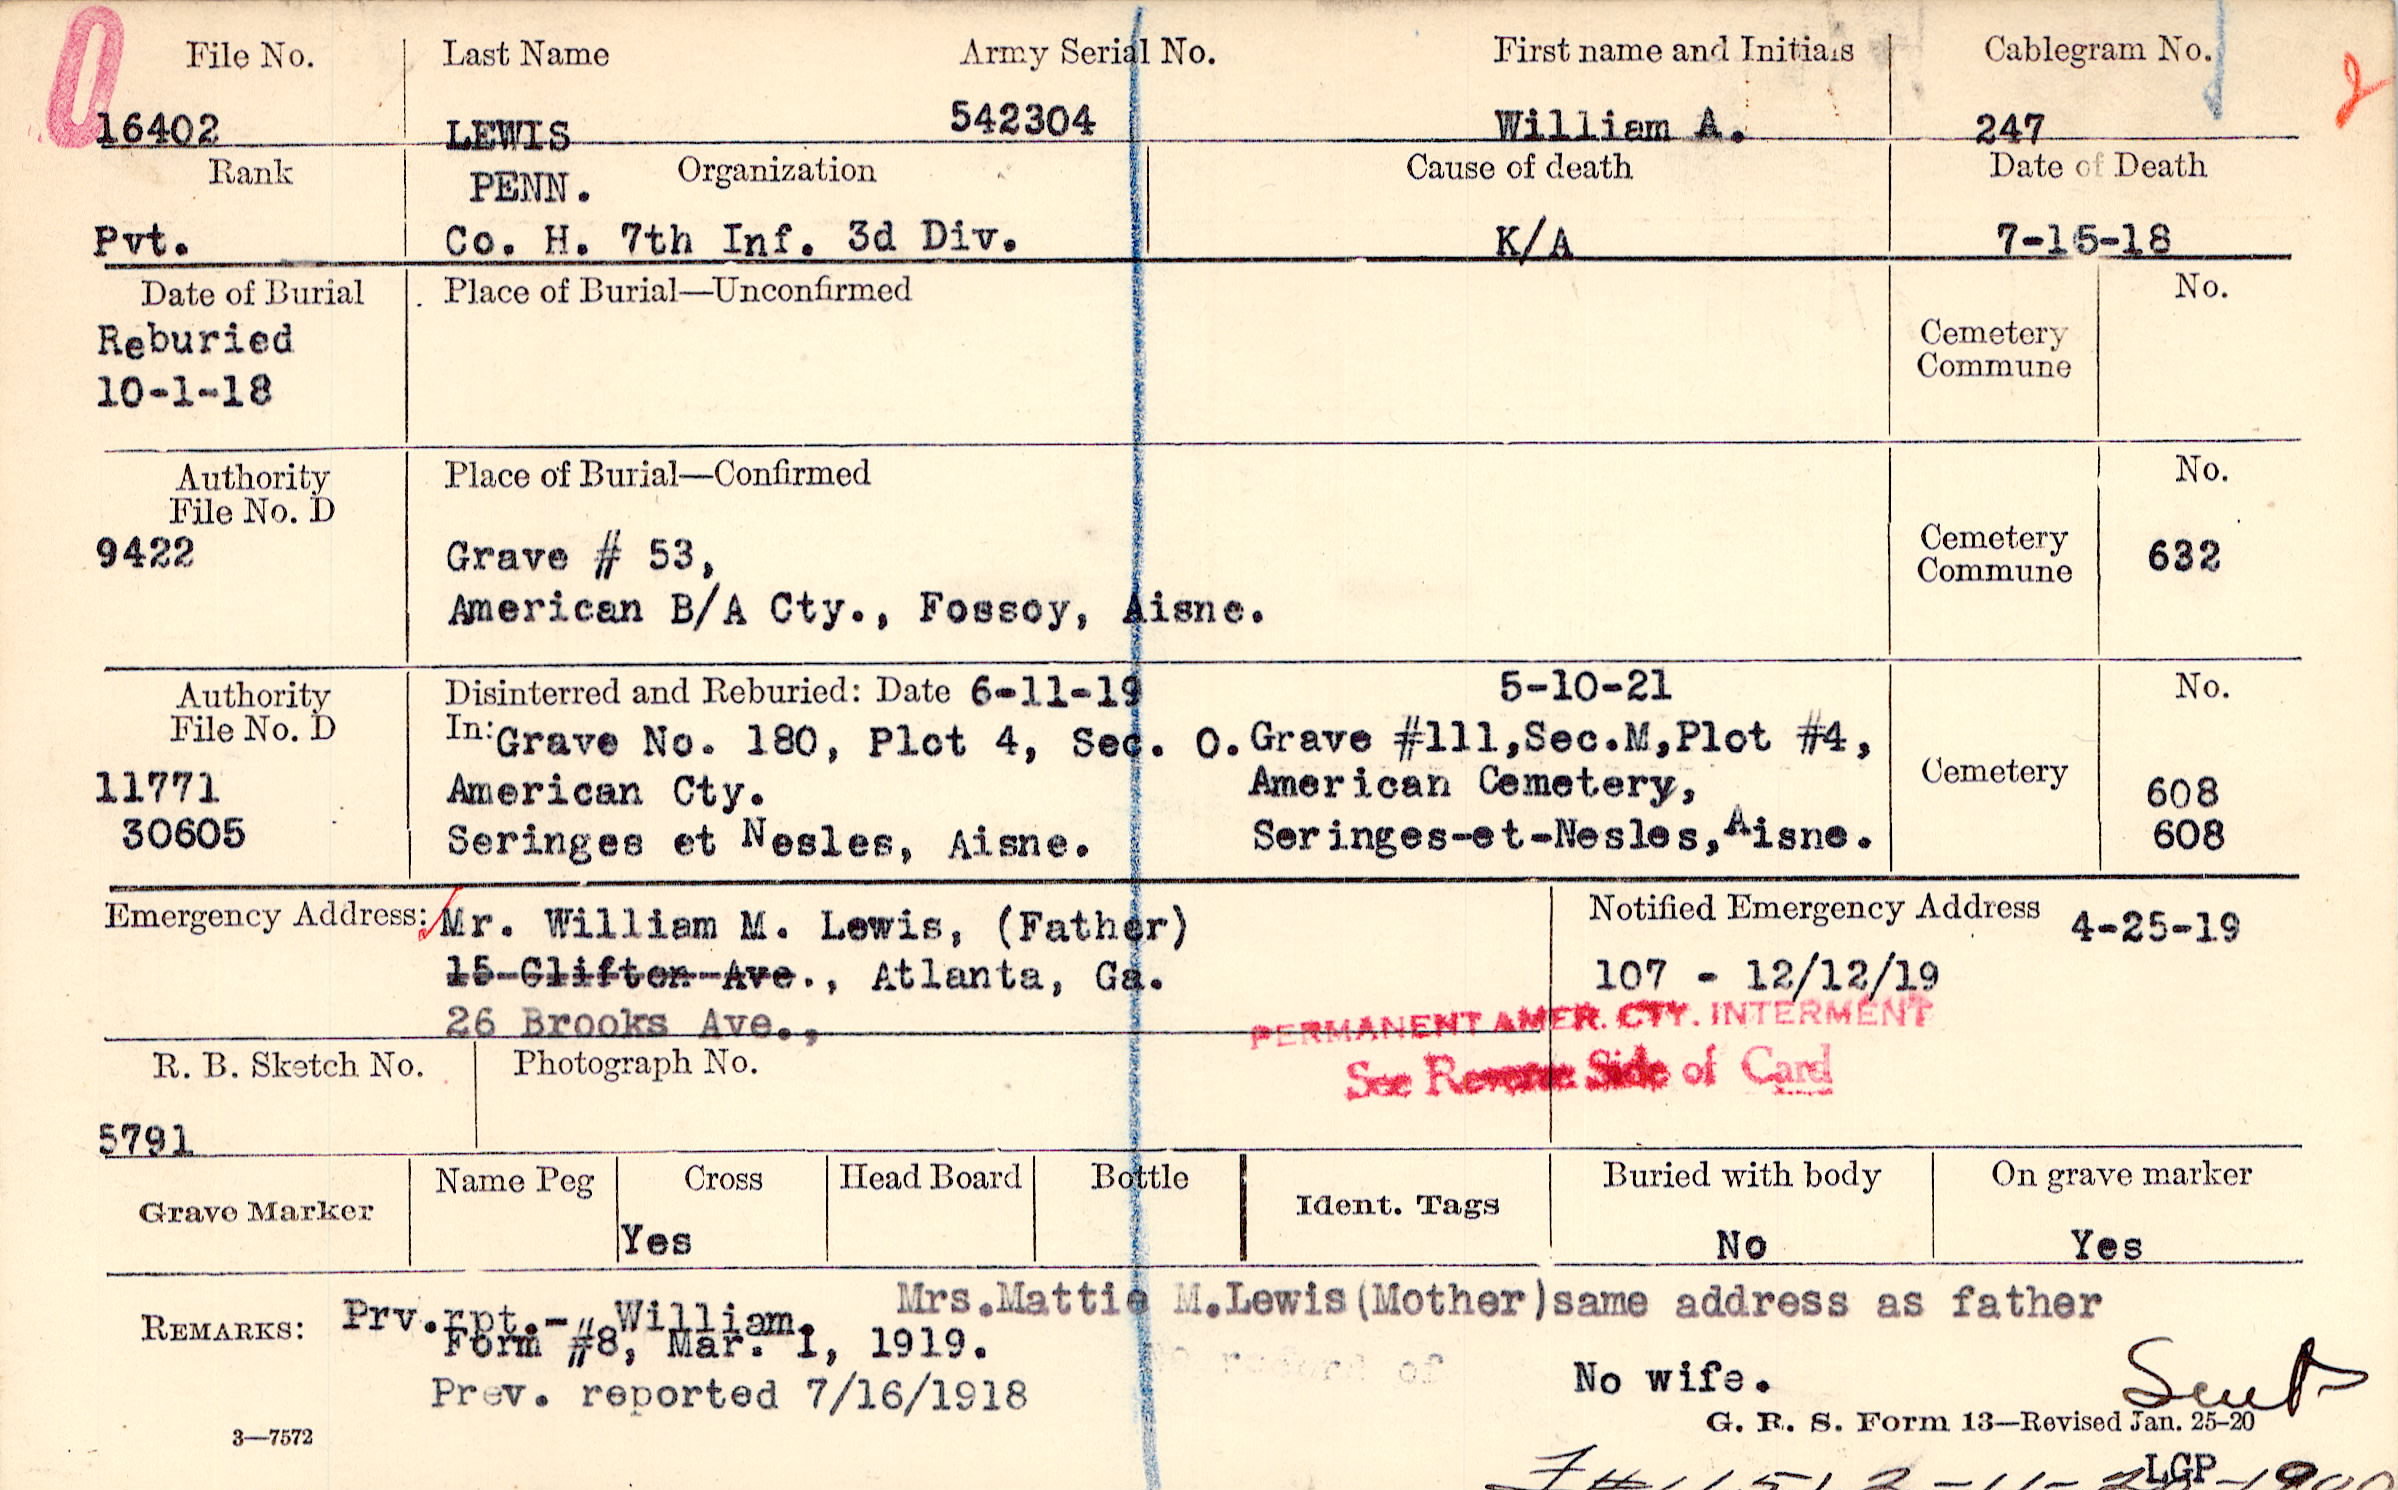 File No. Last Name Army Serial No. First name and Initials Cablegram No.
16402 LEWIS 542304 William A. 247
Rank Organization Cause of death Date of Death
PENN.
Pvt. Co. H. 7th Inf. 3d Div. K/A 7-15-18
Date of Burial Place of Burial—Unconfirmed No.
Reburied
10-1-18
Cemetery
Commune
Authority
File No. D
9422
Place of Burial—Confirmed No.
Grave # 53,
American B/A Cty., Fossoy, Aisne.
Cemetery
Commune
632
Authority
File No. D
11771
30605
Disinterred and Reburied: Date 6-11-19
In: Grave No. 180, Plot 4, Sec. O.
American Cty.
Seringes et Nesles, Aisne.
5-10-21
Grave #111,Sec.M,Plot #4,
American Cemetery,
Seringes-et-Nesles,Aisne.
Cemetery
No.
608
608
Emergency Address: Mr. William M. Lewis, (Father)
15 Clifton Ave., Atlanta, Ga.
26 Brooks Ave.,
Notified Emergency Address 4-25-19
107 - 12/12/19
PERMANENT AMER. CTY. INTERMENT
See Reverse Side of Card
R. B. Sketch No. Photograph No.
5791
Grave Marker Name Peg Cross Head Board Bottle Ident. Tags Buried with body On grave marker
Yes No Yes
REMARKS: Prv.rpt.- William. Mrs.Mattie M.Lewis(Mother)same address as father
Form #8, Mar. 1, 1919.
record of
No wife.
Sent
Prev. reported 7/16/1918
3—7572
G. R. S. Form 13—Revised Jan. 25-20
LGP